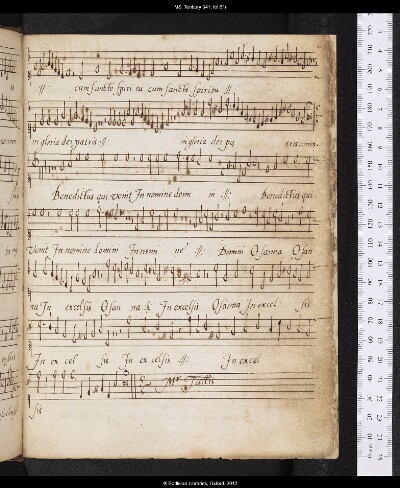 MS. Tenbury 341, fol 61r
:||: cum sancto spiri tu cum sancto spiritu :||:
in gloria dei patris :||: in gloria dei pa tris: amen.
Benedictus qui venit In nomine domi ni :||: Benedictus qui
Venit In nomine domini In nomi ne :||: Domini Osanna Osan
na In excelsis Osan na & In excelsis Osanna In excel: sis
In ex cel sis In ex celsis :||: In excel
sis Mr Tallis
© Bodleian Libraries, Oxford, 2012